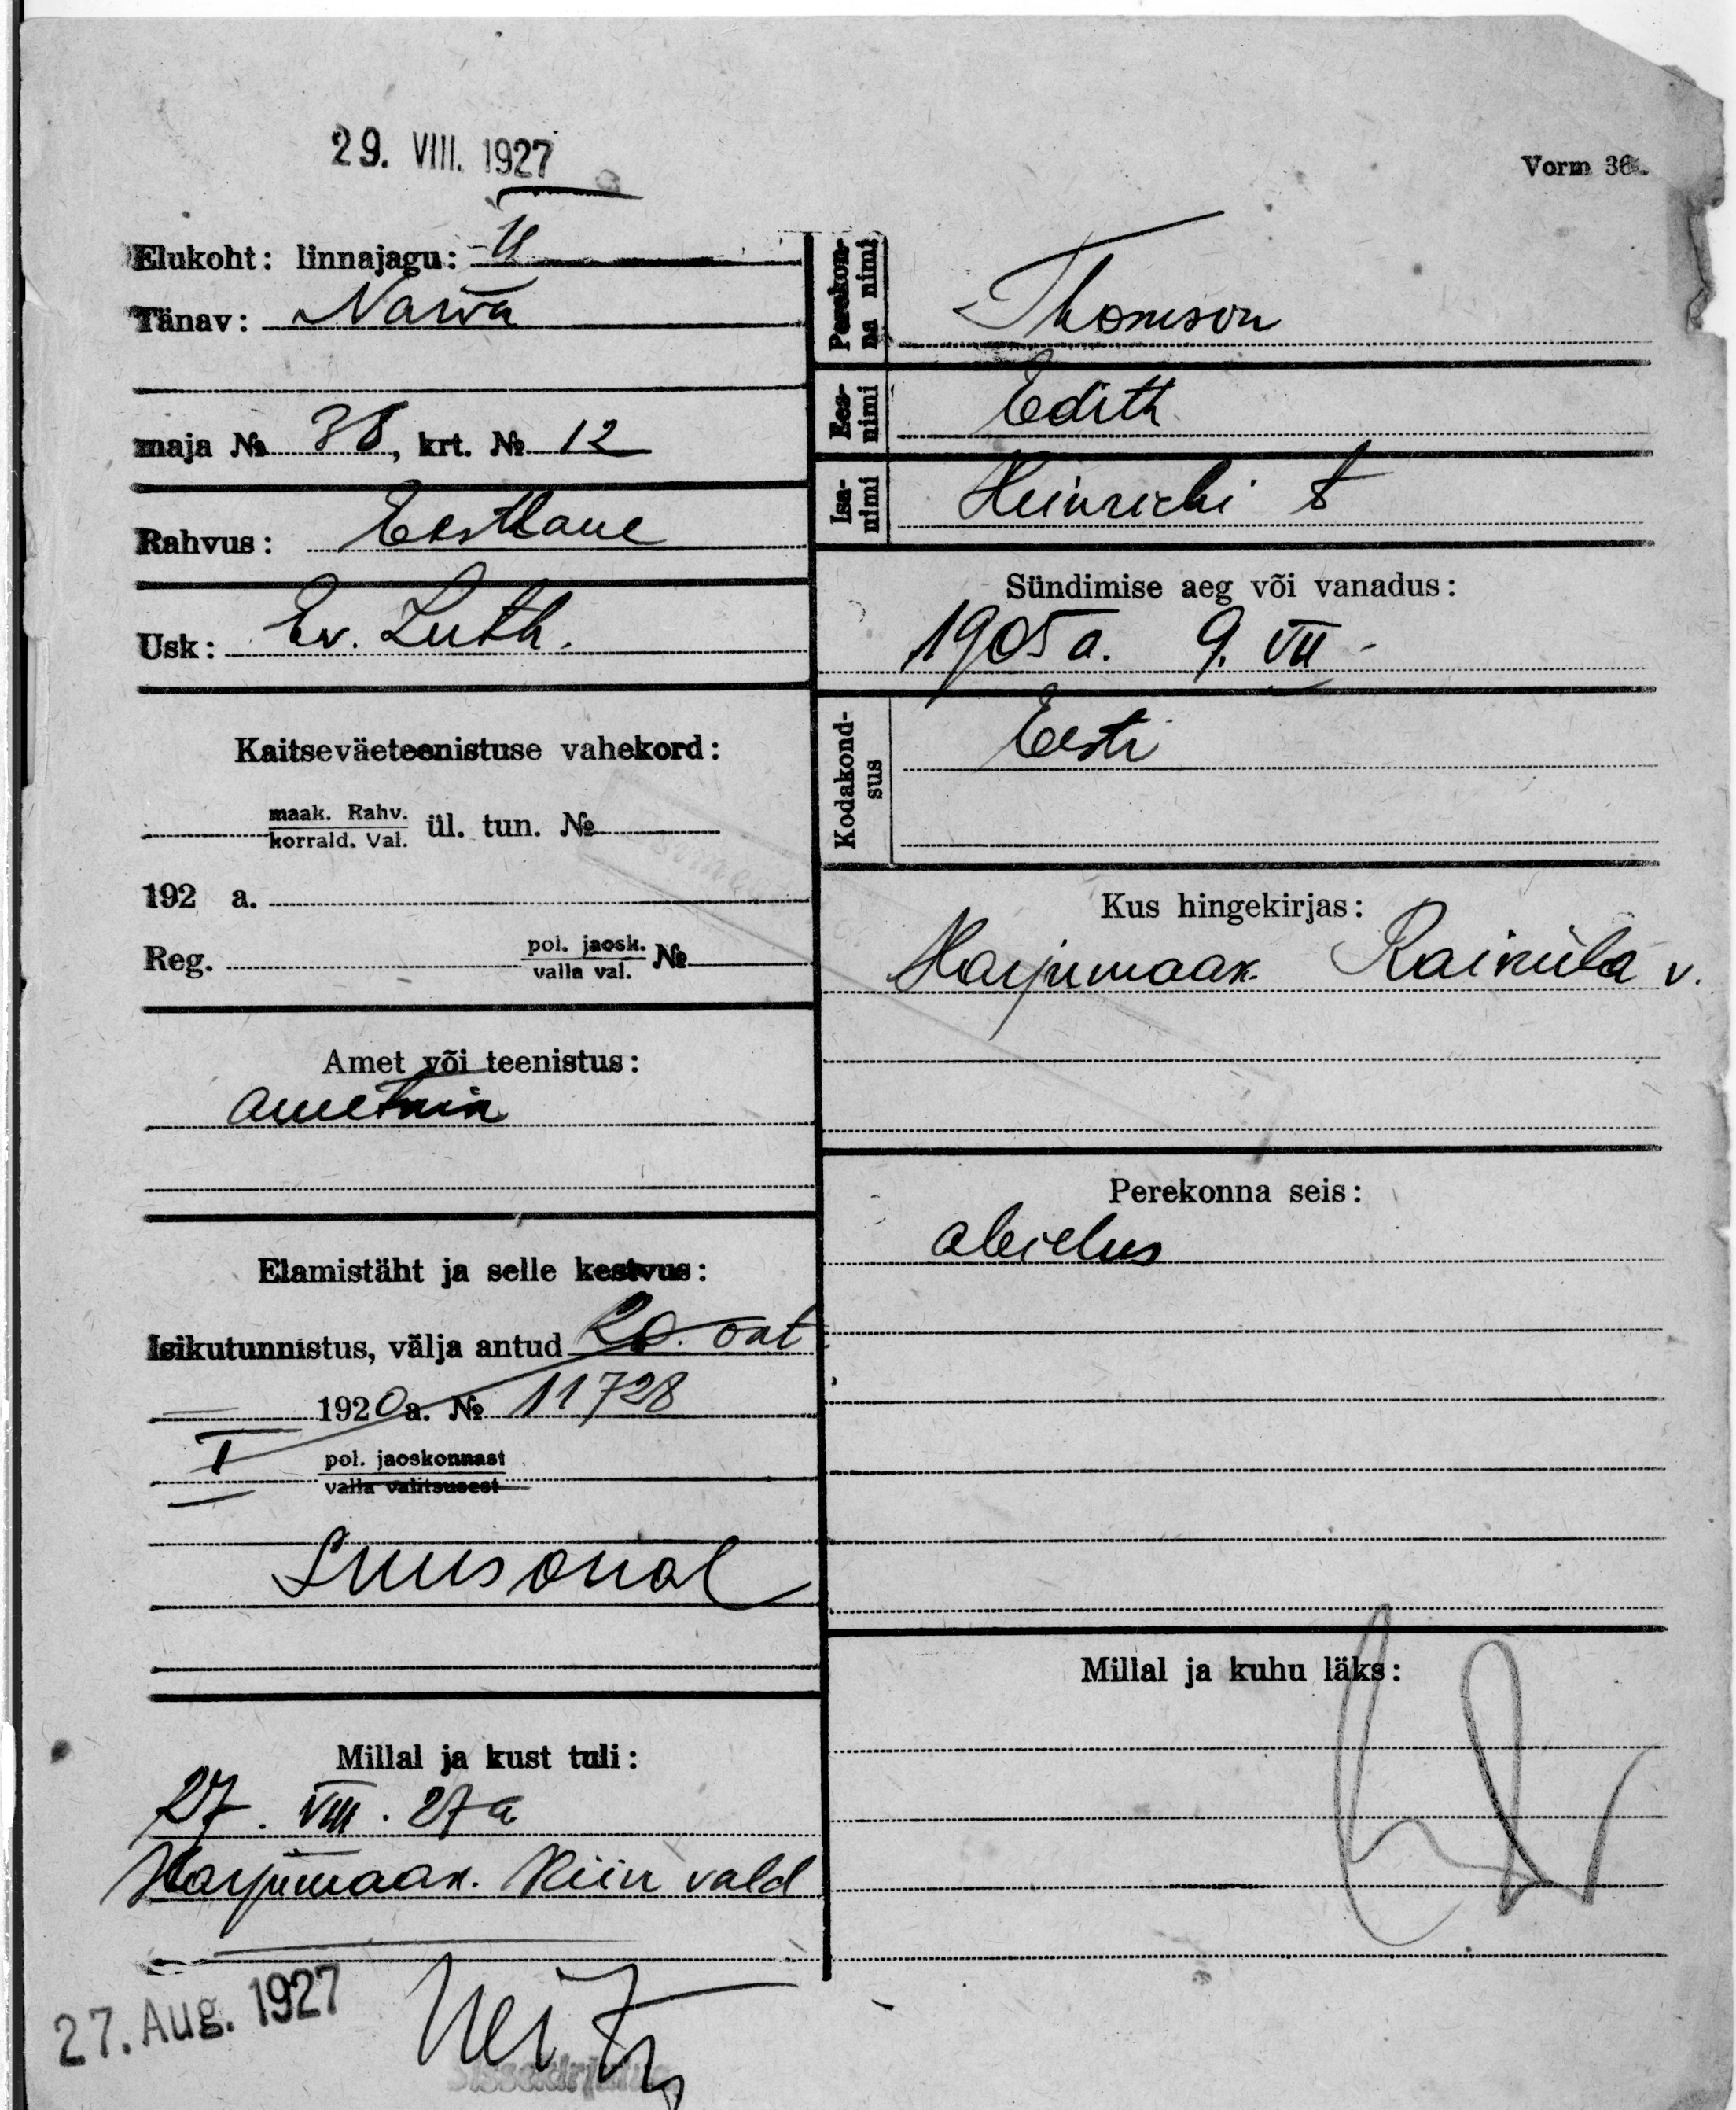 29. VIII. 1927
Vorm 36
Elukoht: linnajagu:
Tänav: Narva
maja № 38, krt. № 12
Rahvus: Eestlane
Usk: Ev. Luth.
Kaitseväeteenistuse vahekord:
maak. Rahv.
korrald. Val. ül. tun. №
192 a.
Reg. pol. jaosk.
valla val. №
Amet või teenistus:
ametnik
Elamistäht ja selle kestvus:
Isikutunnistus, välja antud 20. okt
1920 a. № 11728
I pol. jaoskonnast
valla valitsusest
Millal ja kust tuli:
27. VIII. 27 a
Harjumaak. Riiv vald
27. Aug. 1927
Sissekirjutus
Perekon-
na nimi
Thomson
Ees-
nimi
Edith
Isa-
nimi
Heinrichi t
Sündimise aeg või vanadus:
1905 a. 9. VII
Kodakond-
sus
Eesti
Kus hingekirjas:
Harjumaak. Raiküla v.
Perekonna seis:
abielus
Millal ja kuhu läks: